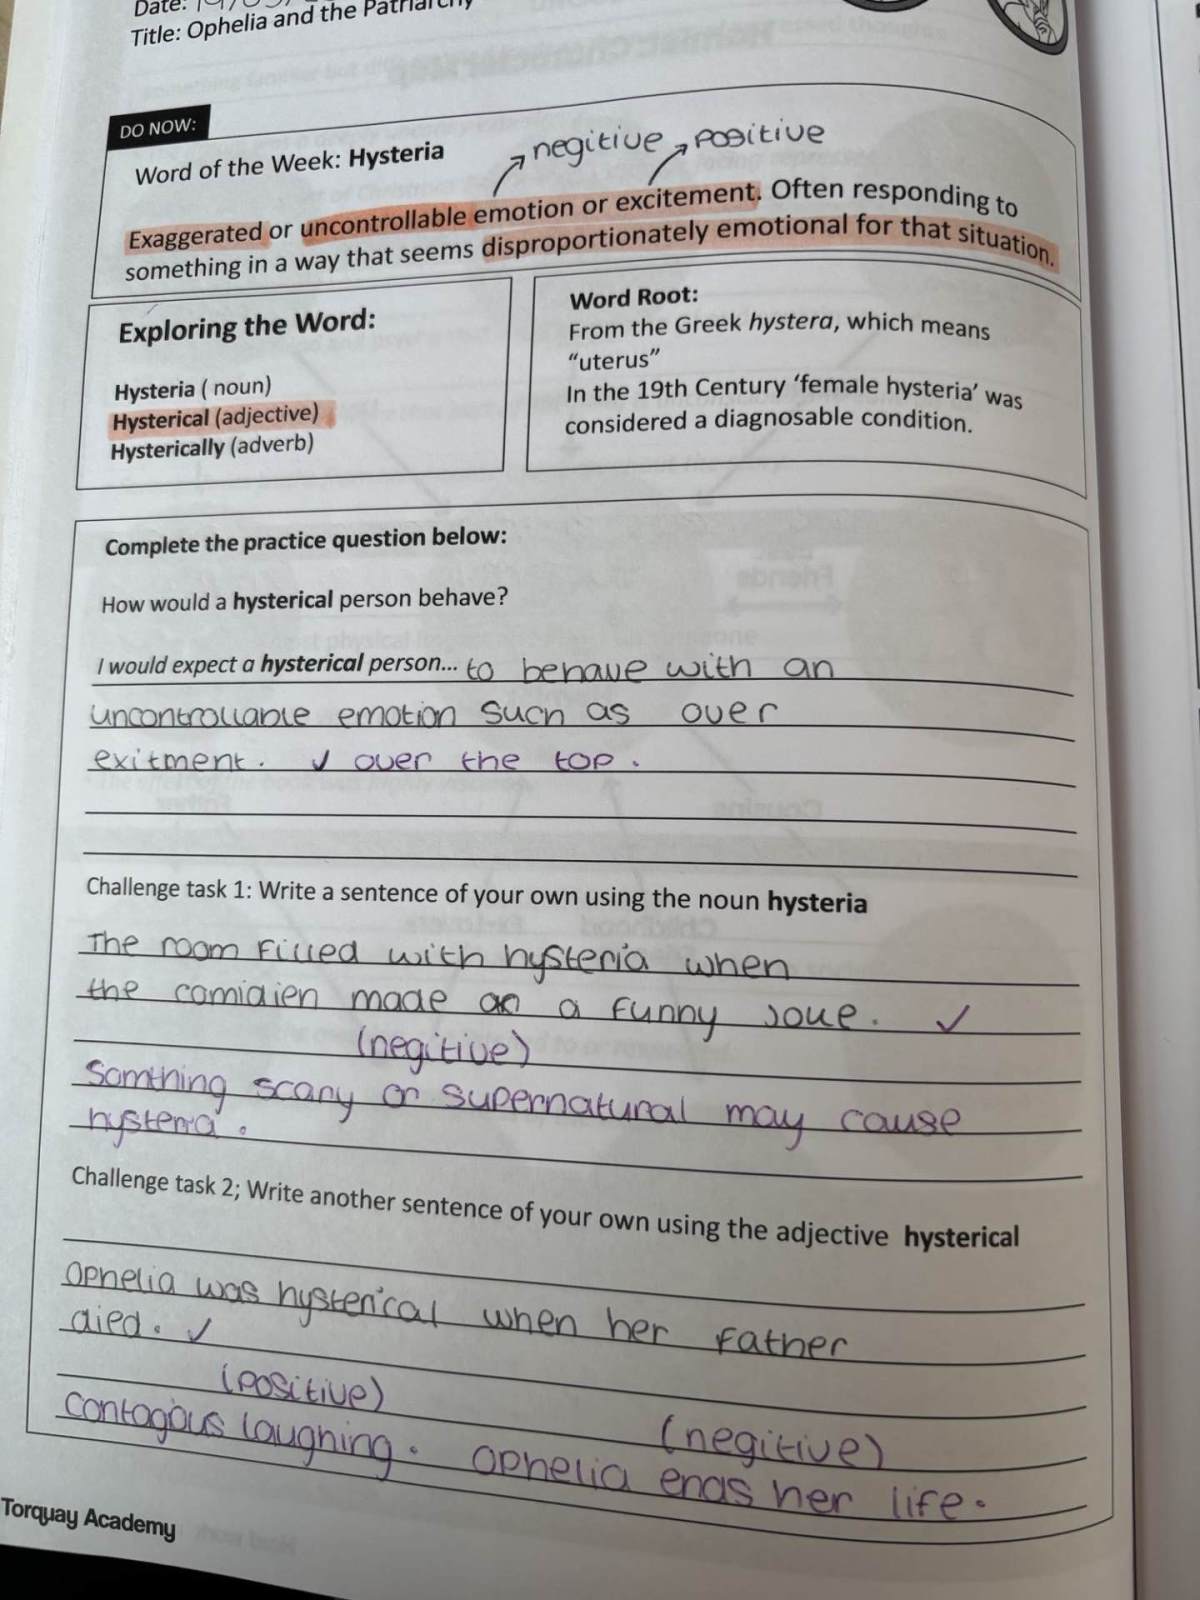 Date: 19/03/
Title: Ophelia and the Patriarchy
DO NOW:
Word of the Week: Hysteria
negitive
positive
Exaggerated or uncontrollable emotion or excitement. Often responding to
something in a way that seems disproportionately emotional for that situation.
Exploring the Word:
Hysteria ( noun)
Hysterical (adjective)
Hysterically (adverb)
Word Root:
From the Greek hystera, which means
“uterus”
In the 19th Century ‘female hysteria’ was
considered a diagnosable condition.
Complete the practice question below:
How would a hysterical person behave?
I would expect a hysterical person... to behave with an
uncontrollable emotion such as over
exitment. ✓ over the top.
Challenge task 1: Write a sentence of your own using the noun hysteria
The room filled with hysteria when
the comidien made a funny joke. ✓
(negitive)
Somthing scary or supernatural may cause
hysteria.
Challenge task 2; Write another sentence of your own using the adjective hysterical
Ophelia was hysterical when her father
died. ✓
(positive)
(negitive)
contagious laughing. Ophelia ends her life.
Torquay Academy